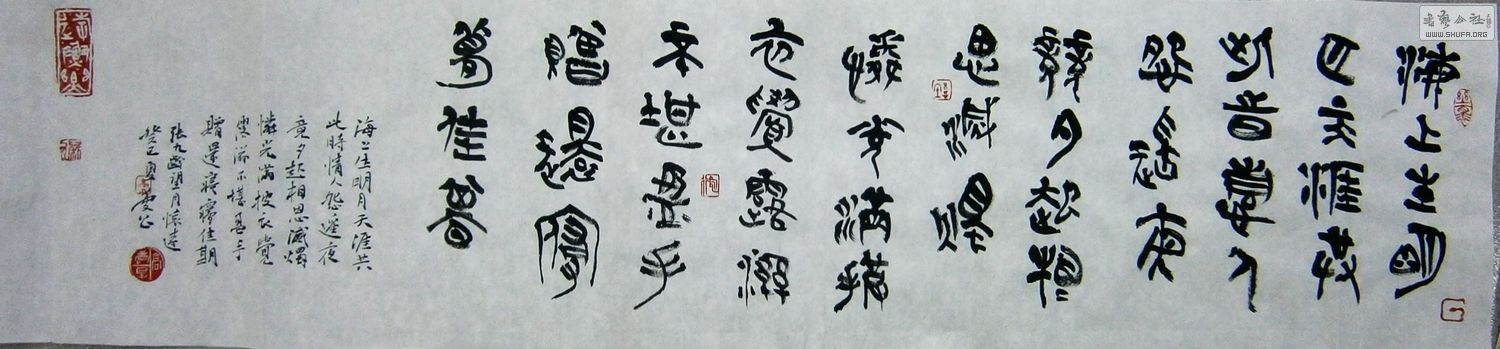 海上生明
月天涯共
此時情人
怨遙夜
竟夕起相
思滅燭
憐光滿披
衣覺露滋
不堪盈手
贈還寢
夢佳期
海上生明月天涯共
此時情人怨遥夜
竟夕起相思滅燭
憐光滿披衣覺
露滋不堪盈手
贈還寢夢佳期
張九齡望月懷遠
癸巳夏
書藝公社
WWW.SHUFA.ORG